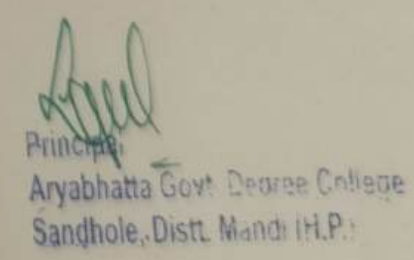 Principal
Aryabhatta Govt. Degree College
Sandhole, Distt. Mandi (H.P.)